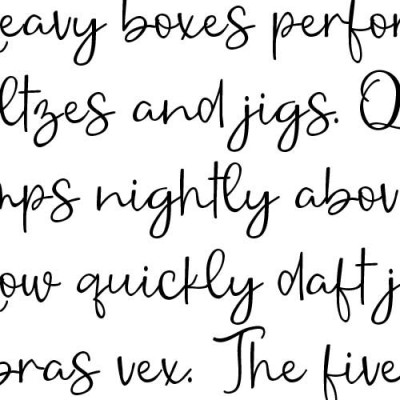 eavy boxes perfor
ltzes and jigs. Q
mps nightly abov
ow quickly daft j
bras vex. The five